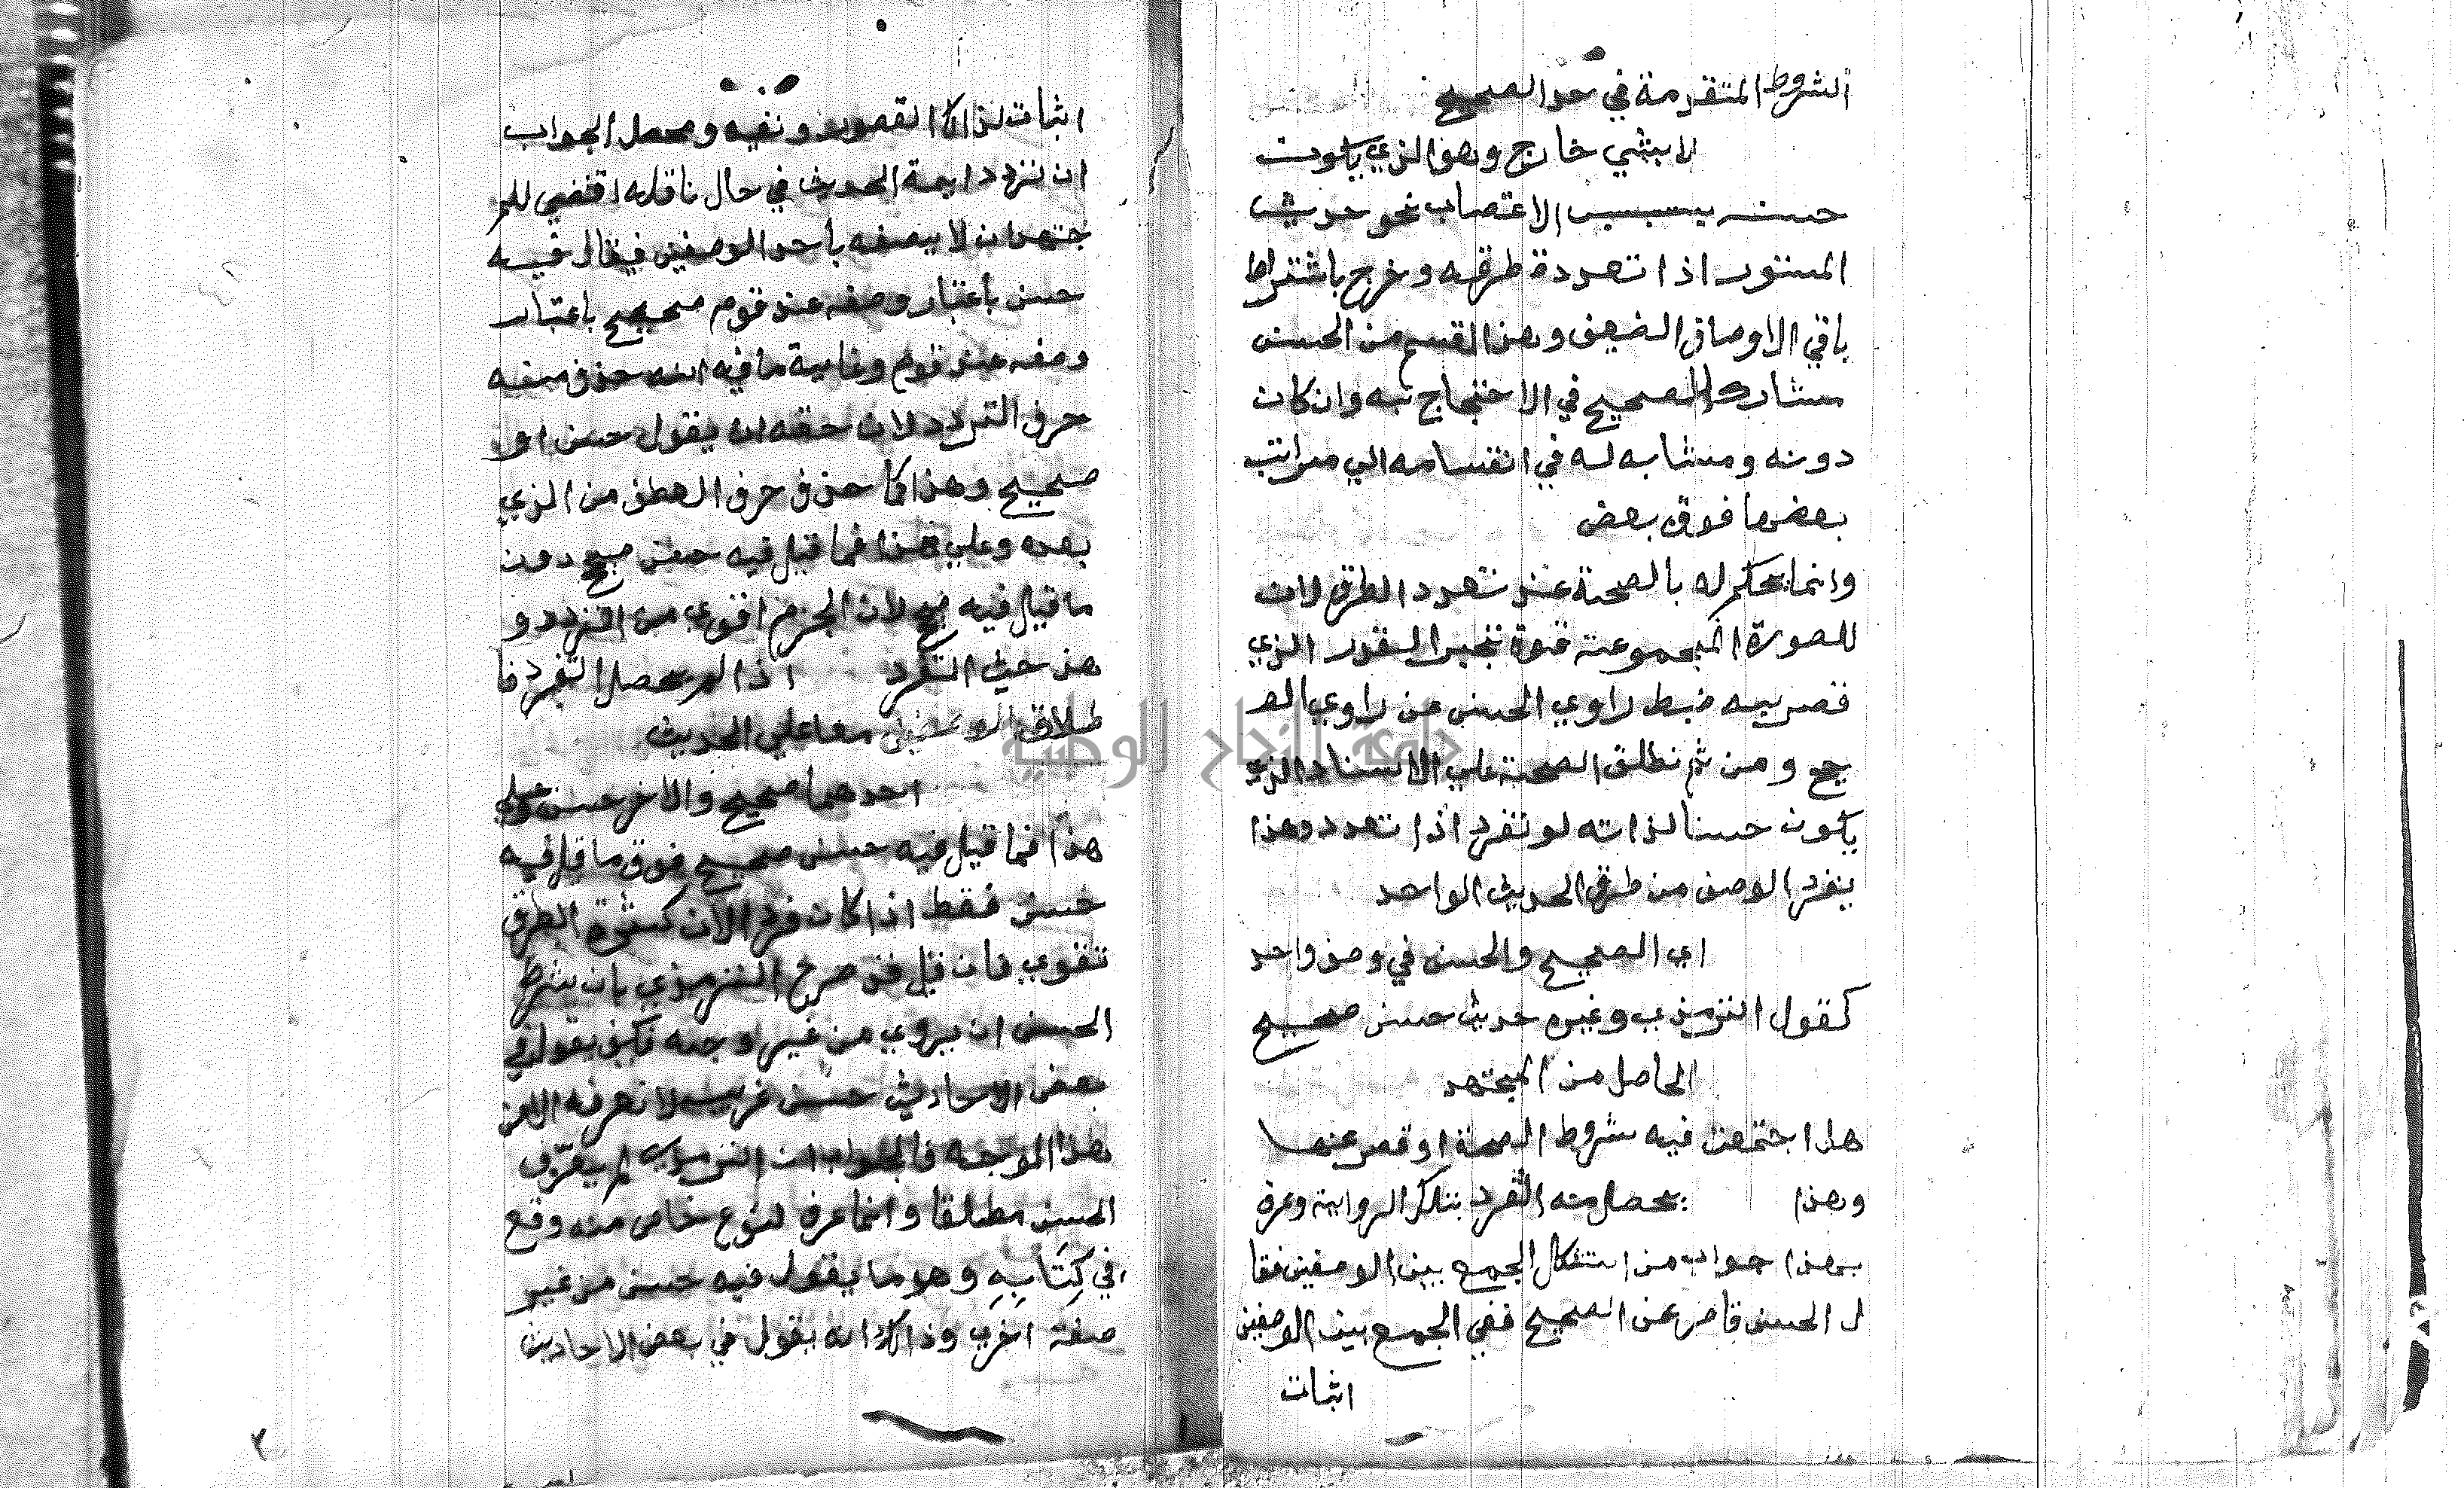 الشروط المتقدمة في حد الصحيح
لا بشي خارج وهو الذي يكون
حسنه بسبب الاعتضاد نحو حديث
المستور اذا تعددة طرقه وخرج باشتراط
باقي الاوصاف الضعيف وهذا القسم من الحسن
مشارك للصحيح في الاحتجاج به وان كان
دونه ومشابه له في انقسامه الي مراتب
بعضها فوق بعض
وانما يحكم له بالصحة عند تعدد الطرق لان
للصورة المجموعة قوة تجبر القدر الذي
قصر به ضبط راوي الحسن عن راوي الصـ
ـحيح ومن ثم نطلق الصحة علي الاسناد الذي
يكون حسنا لذاته لو تفرد اذا تعدد وهذا
ينفرد الوصف من طرق الحديث الواحد
اي الصحيح والحسن في وصف واحد
كقول الترمذي وغيره حديث حسن صحيح
الحاصل من المجتهد
هل اجتمعت فيه شروط الصحة او قصر عنها
وهذا يحصل منه التفرد بتلك الرواية وعرف
بهذا جواب من استشكل الجمع بين الوصفين فقا
ل الحسن قاصر عن الصحيح ففي الجمع بين الوصفين
اثبات
اثبات لذالك القصور ونفيه ومحصل الجواب
ان تردد ايمة الحديث في حال ناقله اقتضي للمـ
ـجتهد ان لا يصفه باحد الوصفين فيقال فيه
حسن باعتبار وصفه عند قوم صحيح باعتبار
وصفه عند قوم وغاية ما فيه انه حذف منه
حرف التردد لان حقه ان يقول حسن او
صحيح وهذا كما حذف حرف العطف من الذي
بعده وعلي هذا فما قيل فيه حسن صحيح دون
ما قيل فيه صحيح لان الجزم اقوي من التردد و
هذا حيث التفرد اذا لم يحصل التفرد فا
طلاق الوصفين معا علي الحديث
احدهما صحيح والاخر حسن علي
هذا فما قيل فيه حسن صحيح فوق ما قيل فيه
حسن فقط اذا كان فردا لان كثرة الطرق
تقوي فان قيل قد صرح الترمذي بان شرط
الحسن ان يروي من غير وجه فكيف يقول في
بعض الاحاديث حسن غريب لا نعرفه الا من
هذا الوجه فالجواب ان الترمذي لم يعرّف
الحسن مطلقا وانما عرف لنوع خاص منه وقع
في كِتَابِهِ وهو ما يقول فيه حسن من غير
صفة اخري وذالك انه يقول في بعض الاحاديث
جامعة النجاح الوطنية